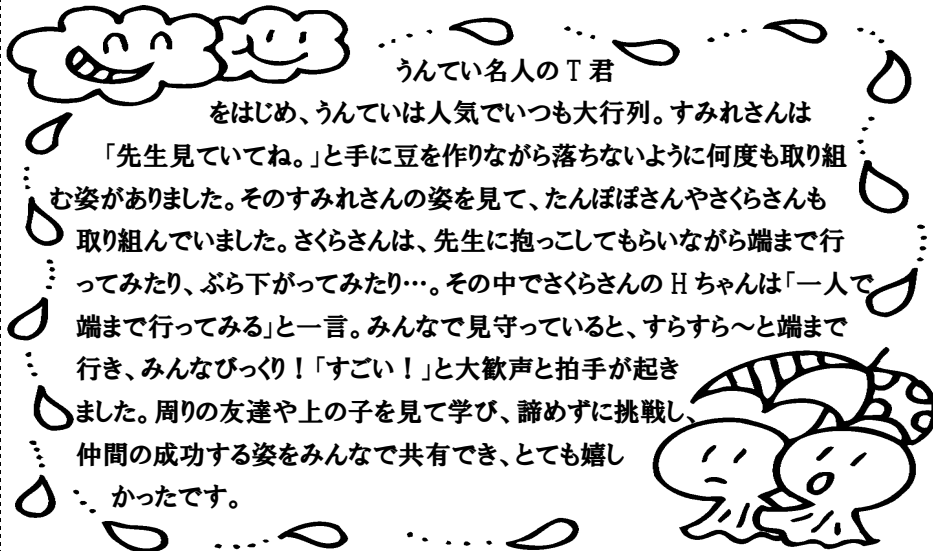 うんてい名人のT君
をはじめ、うんていは人気でいつも大行列。すみれさんは
「先生見ていてね。」と手に豆を作りながら落ちないように何度も取り組
む姿がありました。そのすみれさんの姿を見て、たんぽぽさんやさくらさんも
取り組んでいました。さくらさんは、先生に抱っこしてもらいながら端まで行
ってみたり、ぶら下がってみたり…。その中でさくらさんのHちゃんは「一人で
端まで行ってみる」と一言。みんなで見守っていると、すらすら～と端まで
行き、みんなびっくり！「すごい！」と大歓声と拍手が起き
ました。周りの友達や上の子を見て学び、諦めずに挑戦し、
仲間の成功する姿をみんなで共有でき、とても嬉し
かったです。